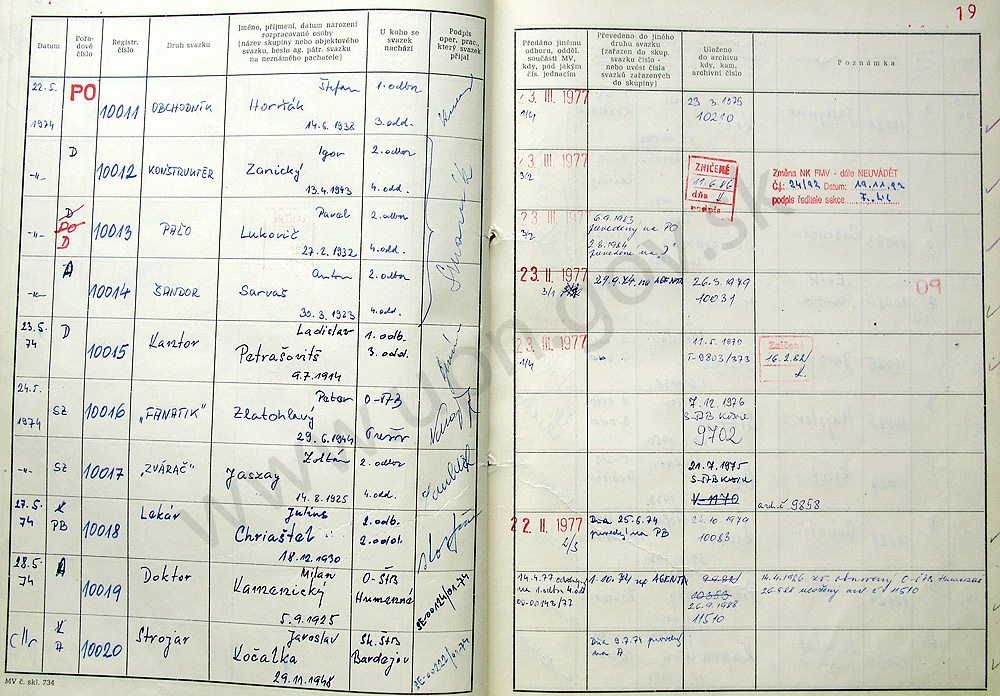 19
Datum
Pořa-
dové
číslo
Registr.
číslo
Druh svazku
Jméno, příjmení, datum narození
rozpracované osoby
(název skupiny nebo objektového
svazku, heslo ag. pátr. svazku
na neznámého pachatele)
U koho se
svazek
nachází
Podpis
oper. prac.,
který svazek
přijal
Předáno jinému
odboru, odděl.
součásti MV,
kdy, pod jakým
čís. jednacím
Převedeno do jiného
druhu svazku
(zařazen do skup.
svazku číslo -
nebo uvést čísla
svazků zařazených
do skupiny)
Uloženo
do archivu
kdy, kam,
archivní číslo
Poznámka
22.5.
1974
PO
10011
OBCHODNÍK
Štefan
Horťák
14.6.1938
1. odbor
3. odd.
23. III. 1977
1/4
23.3.1979
10210
-"-
D
10012
KONŠTRUKTÉR
Igor
Zanický
13.4.1943
2. odbor
4. odd.
23. III. 1977
3/2
ZNIČENÉ
11.6.86
dňa
podpis
Změna NK FMV - dále NEUVÁDĚT
Čj.: 24/92 Datum: 19.11.92
podpis ředitele sekce
-"-
D
PO
D
10013
PAĽO
Pavel
Lukovič
27.2.1932
2. odbor
4. odd.
23. III. 1977
3/2
6.9.1983
prevedený na PO
-"-
A
10014
ŠANDOR
Anton
Sarvaš
30.3.1923
2. odbor
4. odd.
23. II. 1977
3/1
29.9.74. na AGENTA
26.3.1979
10031
PO
23.5.
74
D
10015
Kantor
Ladislav
Petrašovitš
9.7.1914
1. odb.
3. odd.
23. III. 1977
1/4
11.5.1979
T-9803/373
Zničené
16.2.82
24.5.
1974
SZ
10016
„FANATIK"
Peter
Zlatohlavý
29.6.1944
O-ŠTB
Prešov
7.12.1976
S-ŠTB Košice
9702
-"-
SZ
10017
„ZVÁRAČ"
Zoltán
Jaszay
14.8.1925
2. odbor
4. odd.
21.7.1975
S-ŠTB Košice
V-1170
arch. č. 9858
27.5.
74
K
PB
10018
Lekár
Július
Chriaštel
18.12.1930
2. odb.
2. odd.
22. II. 1977
2/3
Dňa 25.6.74
prevedený na PB
24.10.1979
10083
28.5.
74
A
10019
Doktor
Milan
Kamenický
5.9.1925
O-ŠTB
Humenné
RE-00124/01-74
14.4.77
na 1. odbor 4. odd
1.10.74 na AGENTA
10353
26.9.1988
11510
14.4.1986 zv. obnovený O-ŠTB Humenné
26.9.88 uložený arch. čís. 11510
K
A
10020
Strojar
Jaroslav
Kočalka
29.11.1948
Sk. ŠTB
Bardejov
RE-00222/01-74
Dňa 9.7.74 prevedený
na A
MV č. skl. 734
www.upn.gov.sk